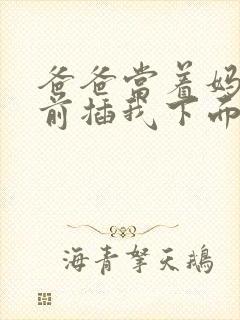 爸爸当着妈
前插我下面
海青拏天鹅